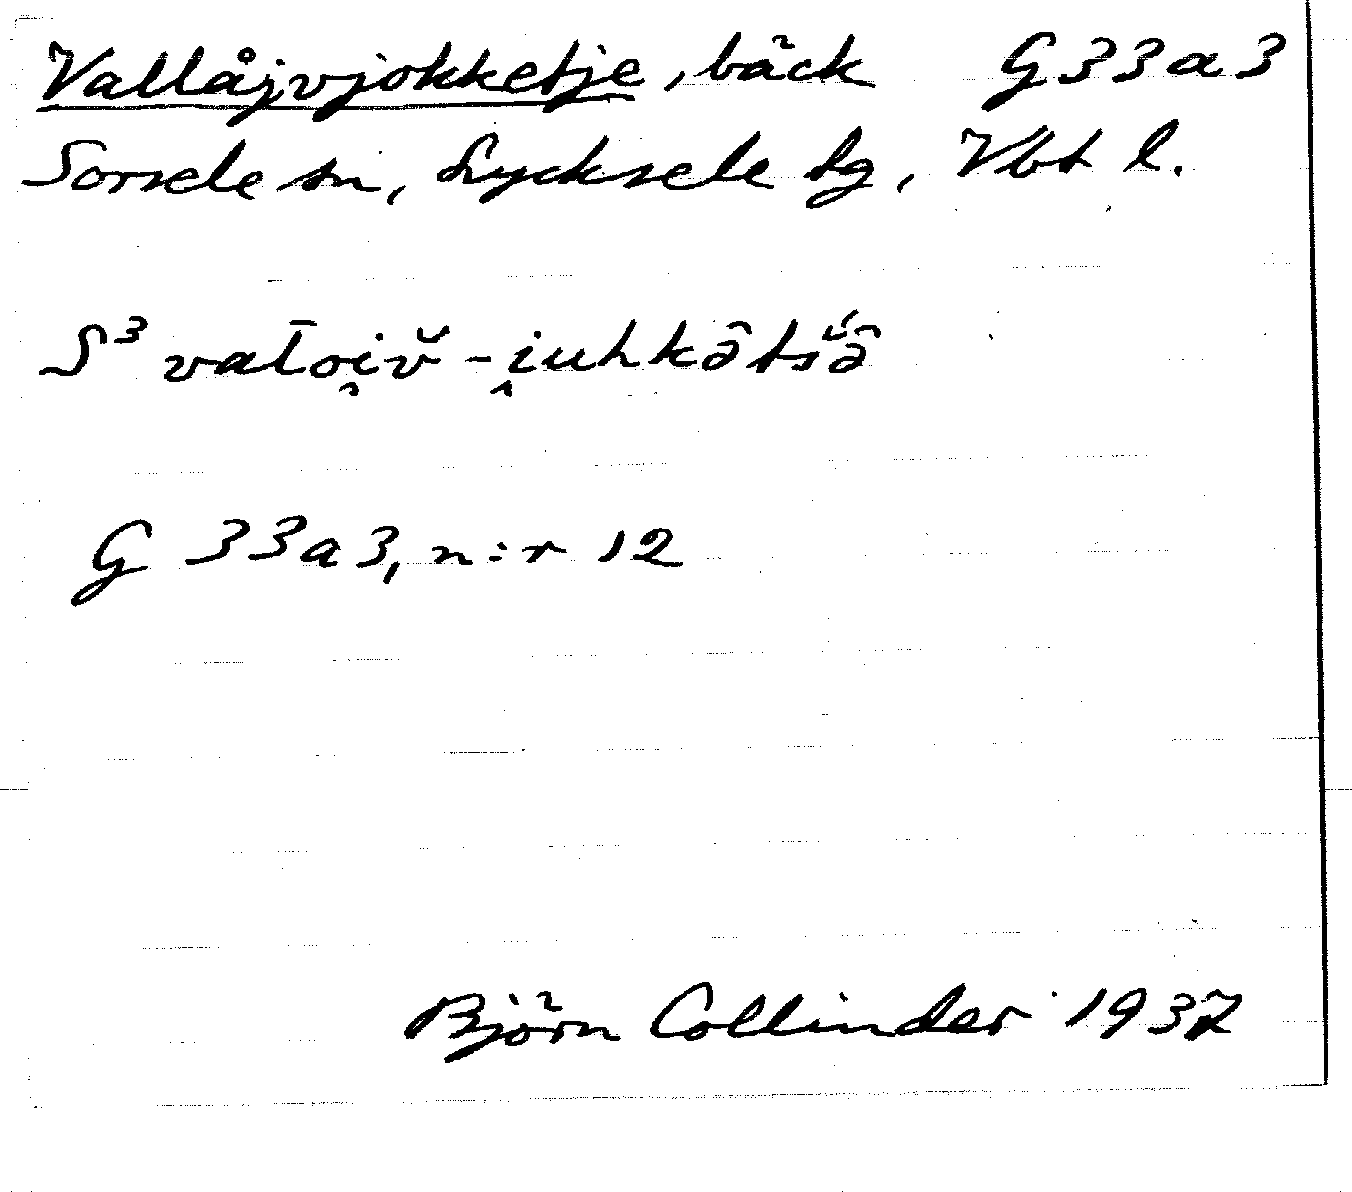 Vallåjvjokketje, bäck G33a3
Sorsele sn, Lycksele tg, Vbt l.
S³ val̄oi̯v̆ - i̯uhkə̂tśə̂
G 33a3, n:r 12
Björn Collinder 1937